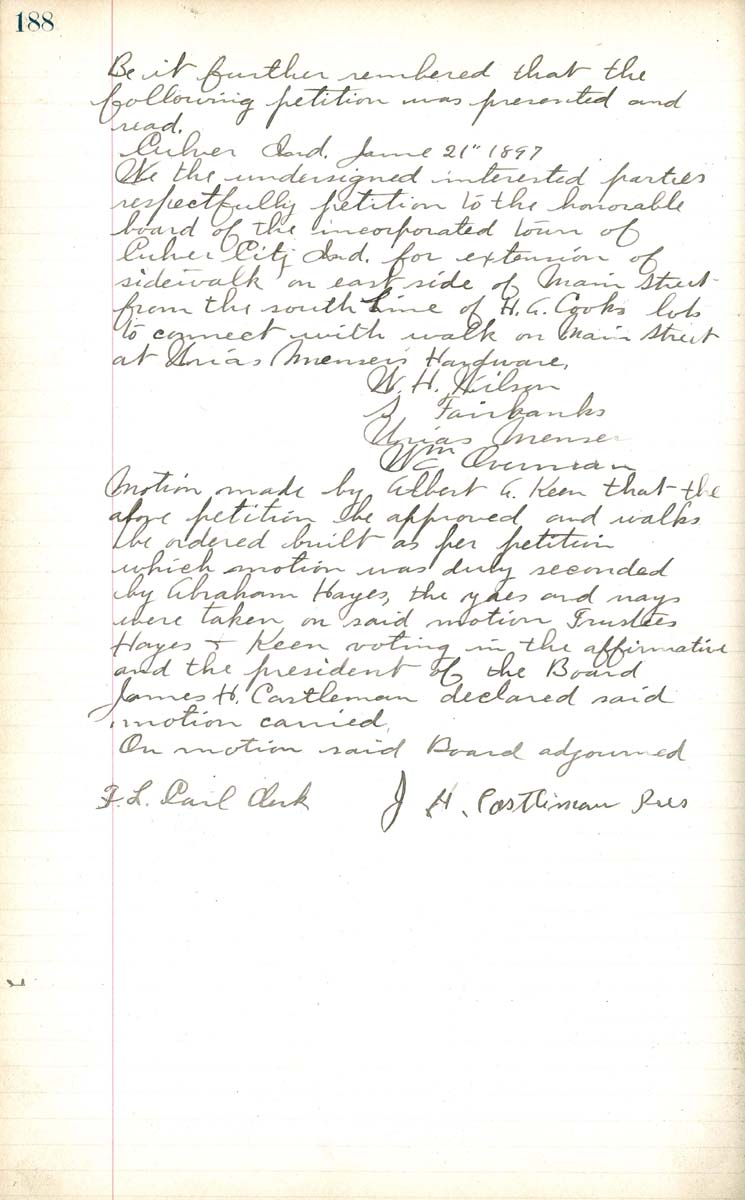 188
Be it further rembered that the
following petition was presented and
read.
Culver Ind. June 21" 1897
We the undersigned interested parties
respectfully petition to the honorable
board of the incorporated town of
Culver City Ind. for extension of
sidewalk on east side of Main Street
from the south Line of H. A. Cooks lots
to connect with walk on Main Street
at Urias Menser's Hardware.
W. H. Wilson
Fairbanks
Urias Menser
Wm Overman
Motion made by Albert A. Keen that the
above petition be approved and walks
be ordered built as per petition
which motion was duly seconded
by Abraham Hayes, the yaes and nays
were taken on said motion Trustees
Hayes + Keen voting in the affirmative
and the president of the Board
James H. Castleman declared said
motion carried.
On motion said Board adjourned
F. L. Carl Clerk J H. Castleman Pres